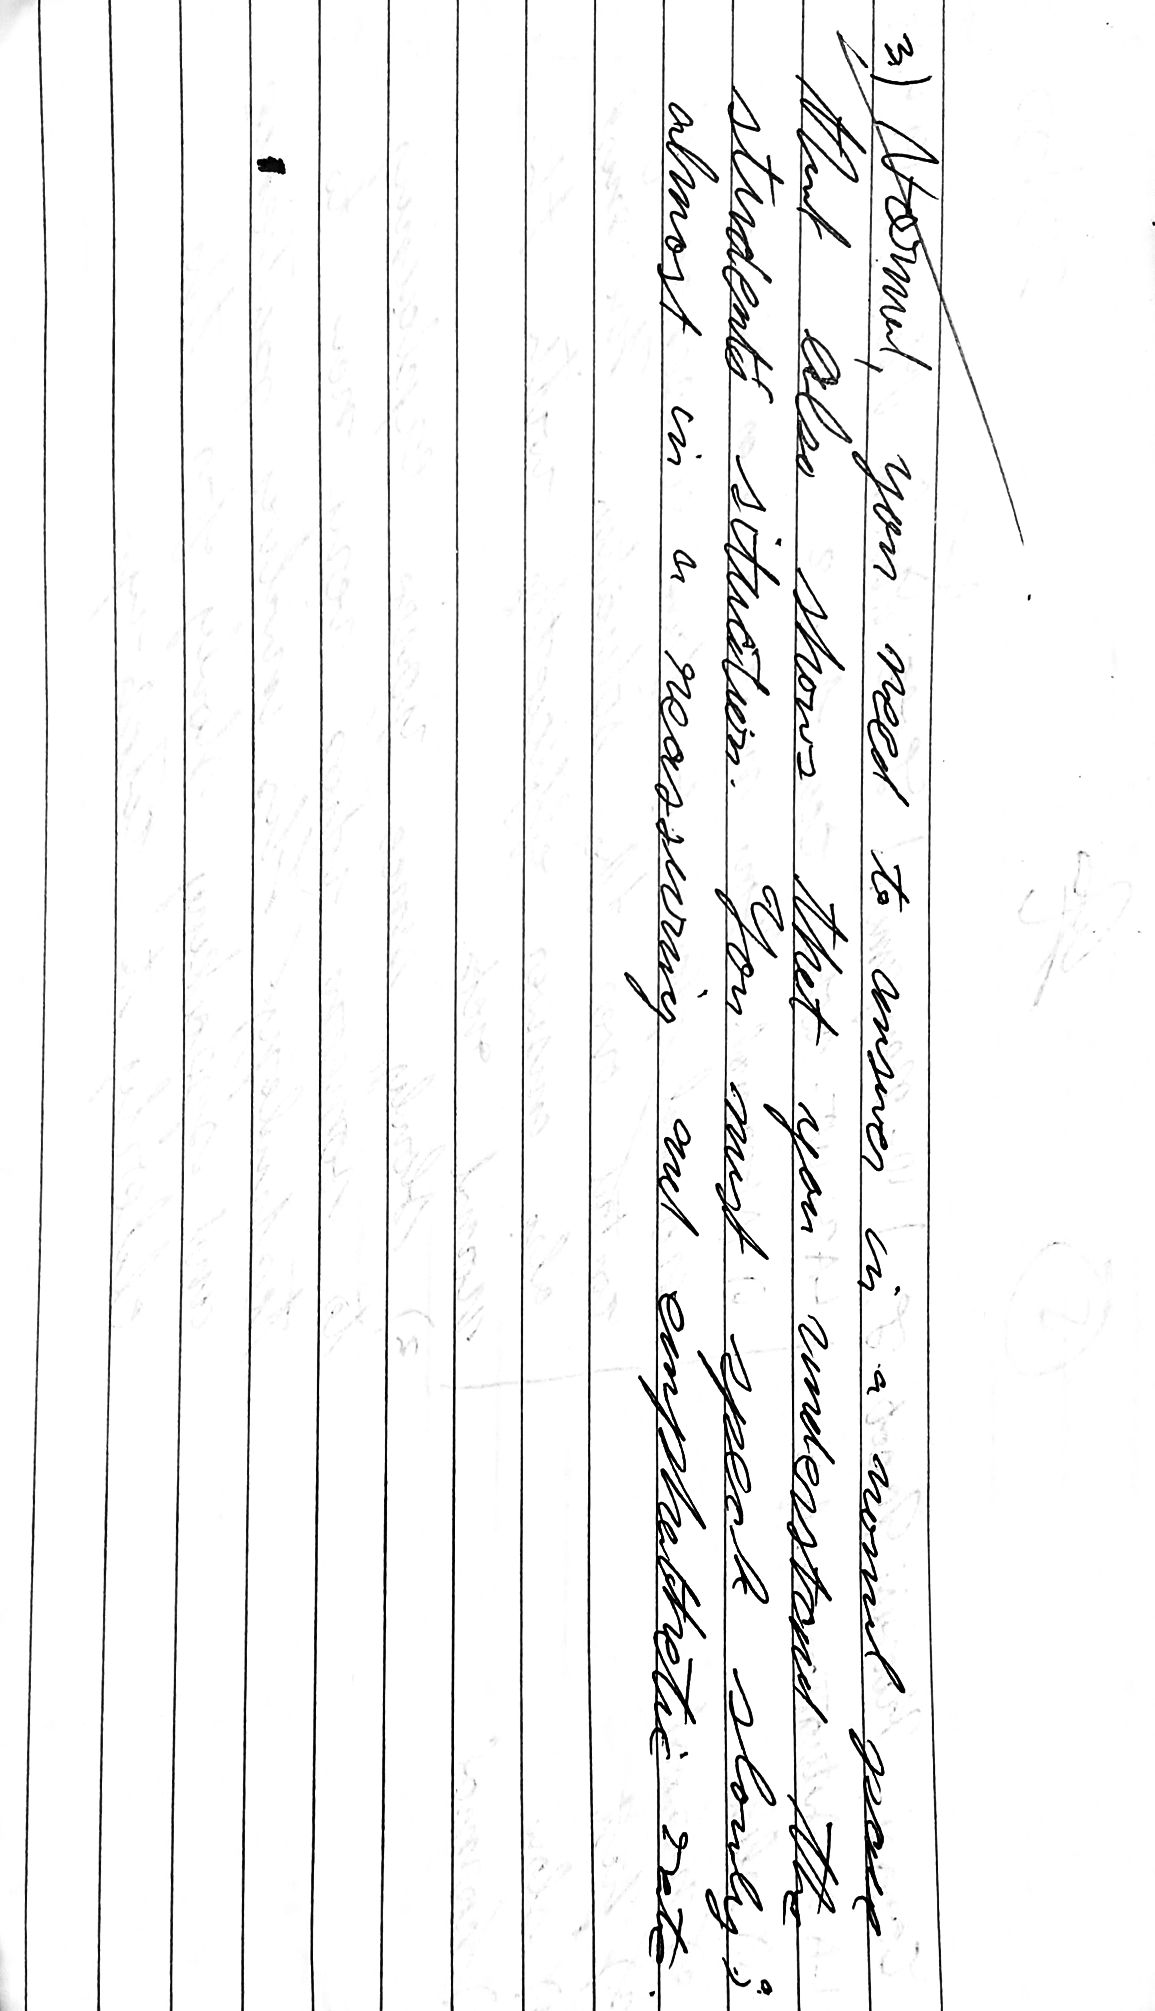 3) Normal, you need to answer in a normal pace
that also shows that you understand the
students situation. You must speak slowly;
almost in a reassuring and emphathetic rate.